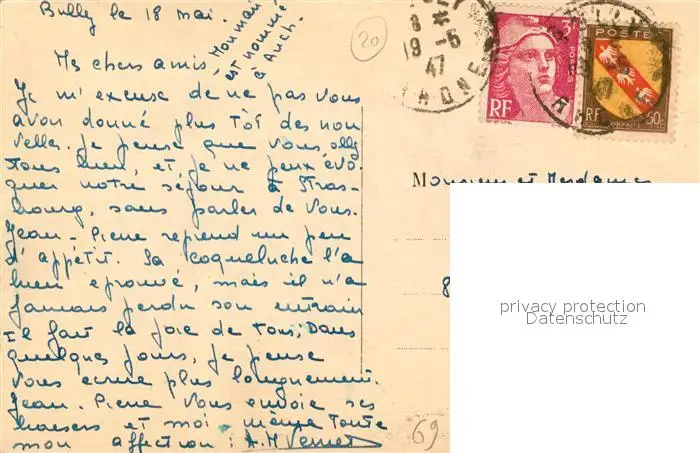 Bully le 18 mai.
Mon mari
est nommé
à Auch.
20
Mes chers amis
Je m'excuse de ne pas vous
avoir donné plus tôt des nou
velles. Je pense que vous allez
tous bien, et je ne peux évo
quer notre séjour à Stras-
bourg, sans parler de vous.
Jean-Pierre reprend un peu
d'appétit. Sa coqueluche l'a
bien eprouvé, mais il n'a
jamais perdu son entrain
il fait la joie de tous; Dans
quelques jours, je pense
vous ecrire plus longuement.
Jean-Pierre vous envoie ses
baisers et moi-même toute
mon affection: A.M Vernet
Monsieur et Mesdames
8
69
8 *
19-5
47
RHONE
3F
POSTES
RF
POSTE
RF
50c
LORRAINE
privacy protection
Datenschutz